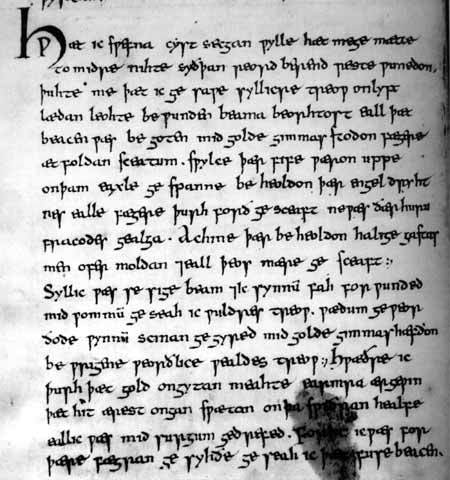 Hwæt ic swefna cyst secgan wylle hæt mege mætte
to midre nihte syðþan reord berend reste wunedon.
þuhte me þæt ic ge sawe syllicre treow onlyft
lædan leohte be wunden beama beorhtost eall þæt
beacen wæs be goten mid golde gimmas stodon fægere
æt foldan sceatum. swylce þær fife wæron uppe
onþam eaxle ge spanne be heoldon þær engel dryht
nes ealle fægere þurh forð ge sceaft newæs ðær huru
fracodes gealga. Achine þær be heoldon halige gastas
men ofer moldan ⁊eall þeos mære ge sceaft:;
Syllic wæs se sige beam ⁊ic synnū fah for wunded
mid wommū ge seah ic wuldres treow. wædum geweor
ðode wynnū scinan gegyred mid golde gimmas hæfdon
be wrigene weorðlice wealdes treow:; Hwæðre ic
þurh þæt gold ongytan meahte earmra ærgewin
þæt hit ærest ongan swætan onþa swiðran healfe
eallic wæs mid surgum gedrefed. Forht ic wæs for
þære fægran ge syhðe ge seah ic þæt fuse beacen.